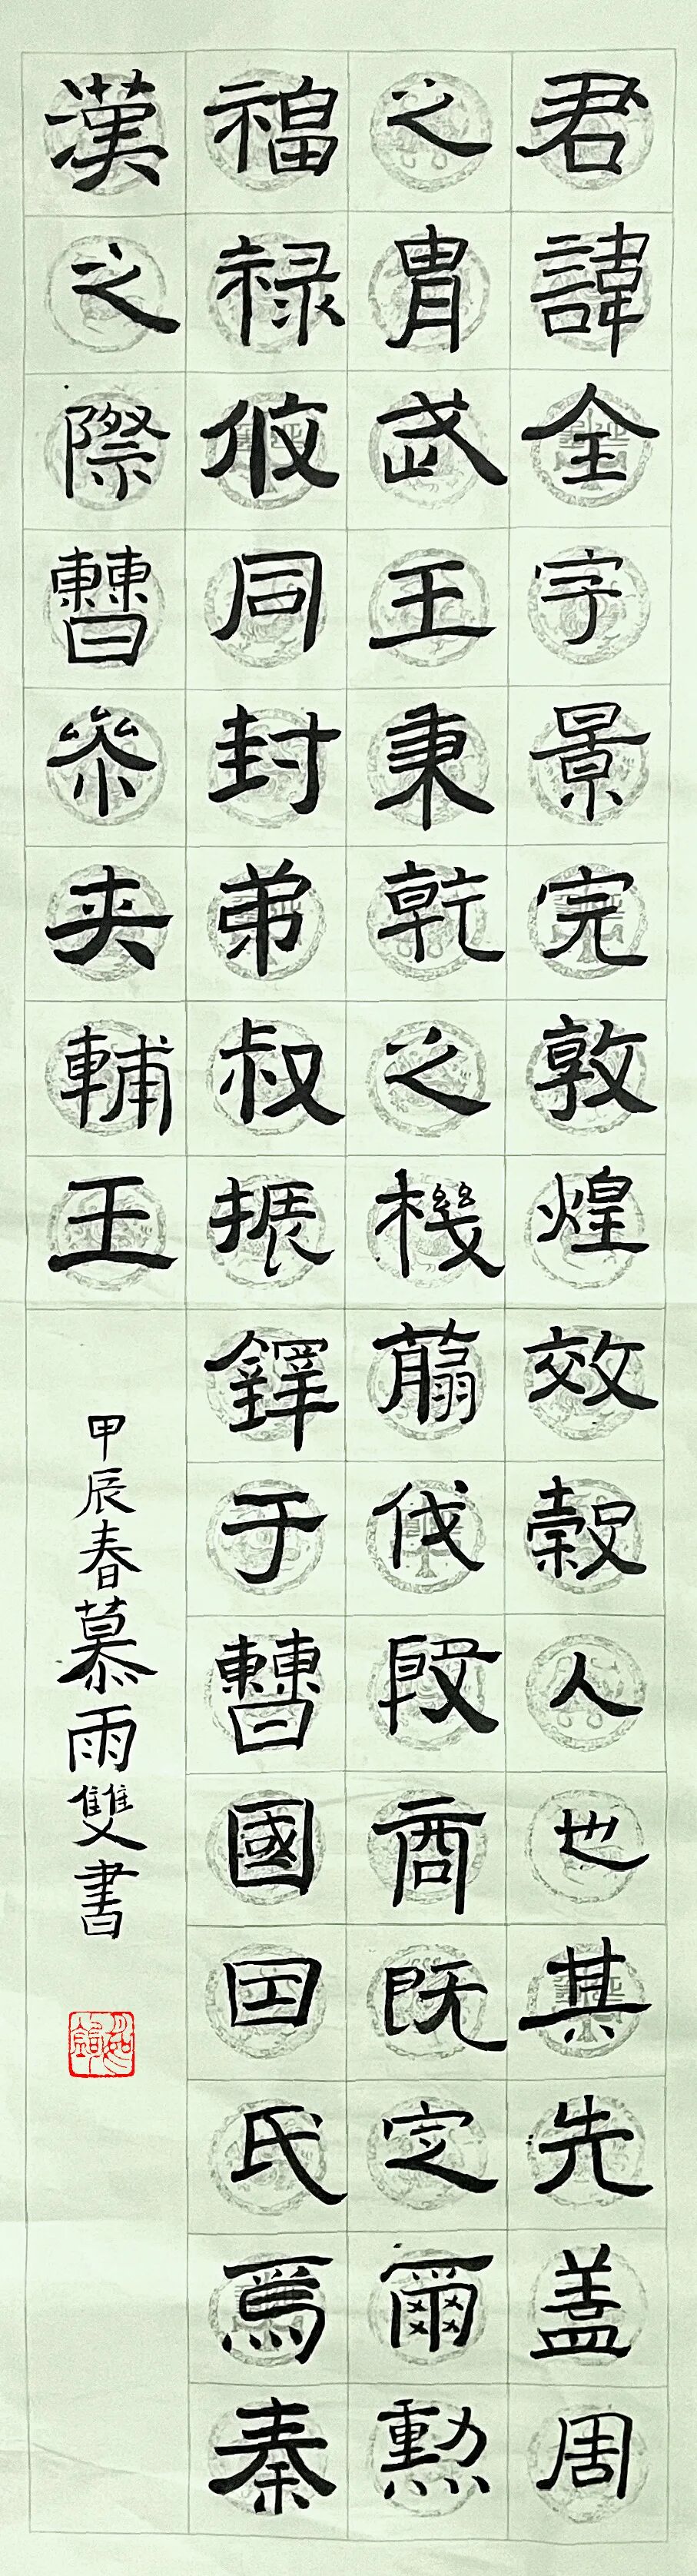 君諱全字景完敦煌效穀人也其先蓋周
之胄武王秉乾之機翦伐殷商既定爾勳
福祿攸同封弟叔振鐸于曹國因氏焉秦
漢之際曹參夾輔王
甲辰春慕雨雙書